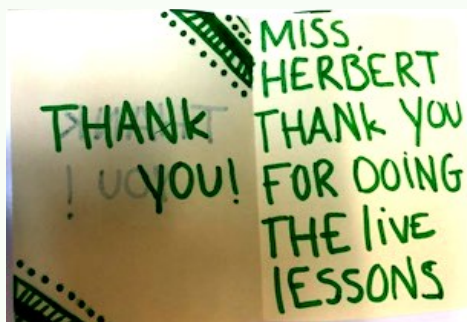 THANK
YOU!
MISS.
HERBERT
THANK YOU
FOR DOING
THE live
lESSONS